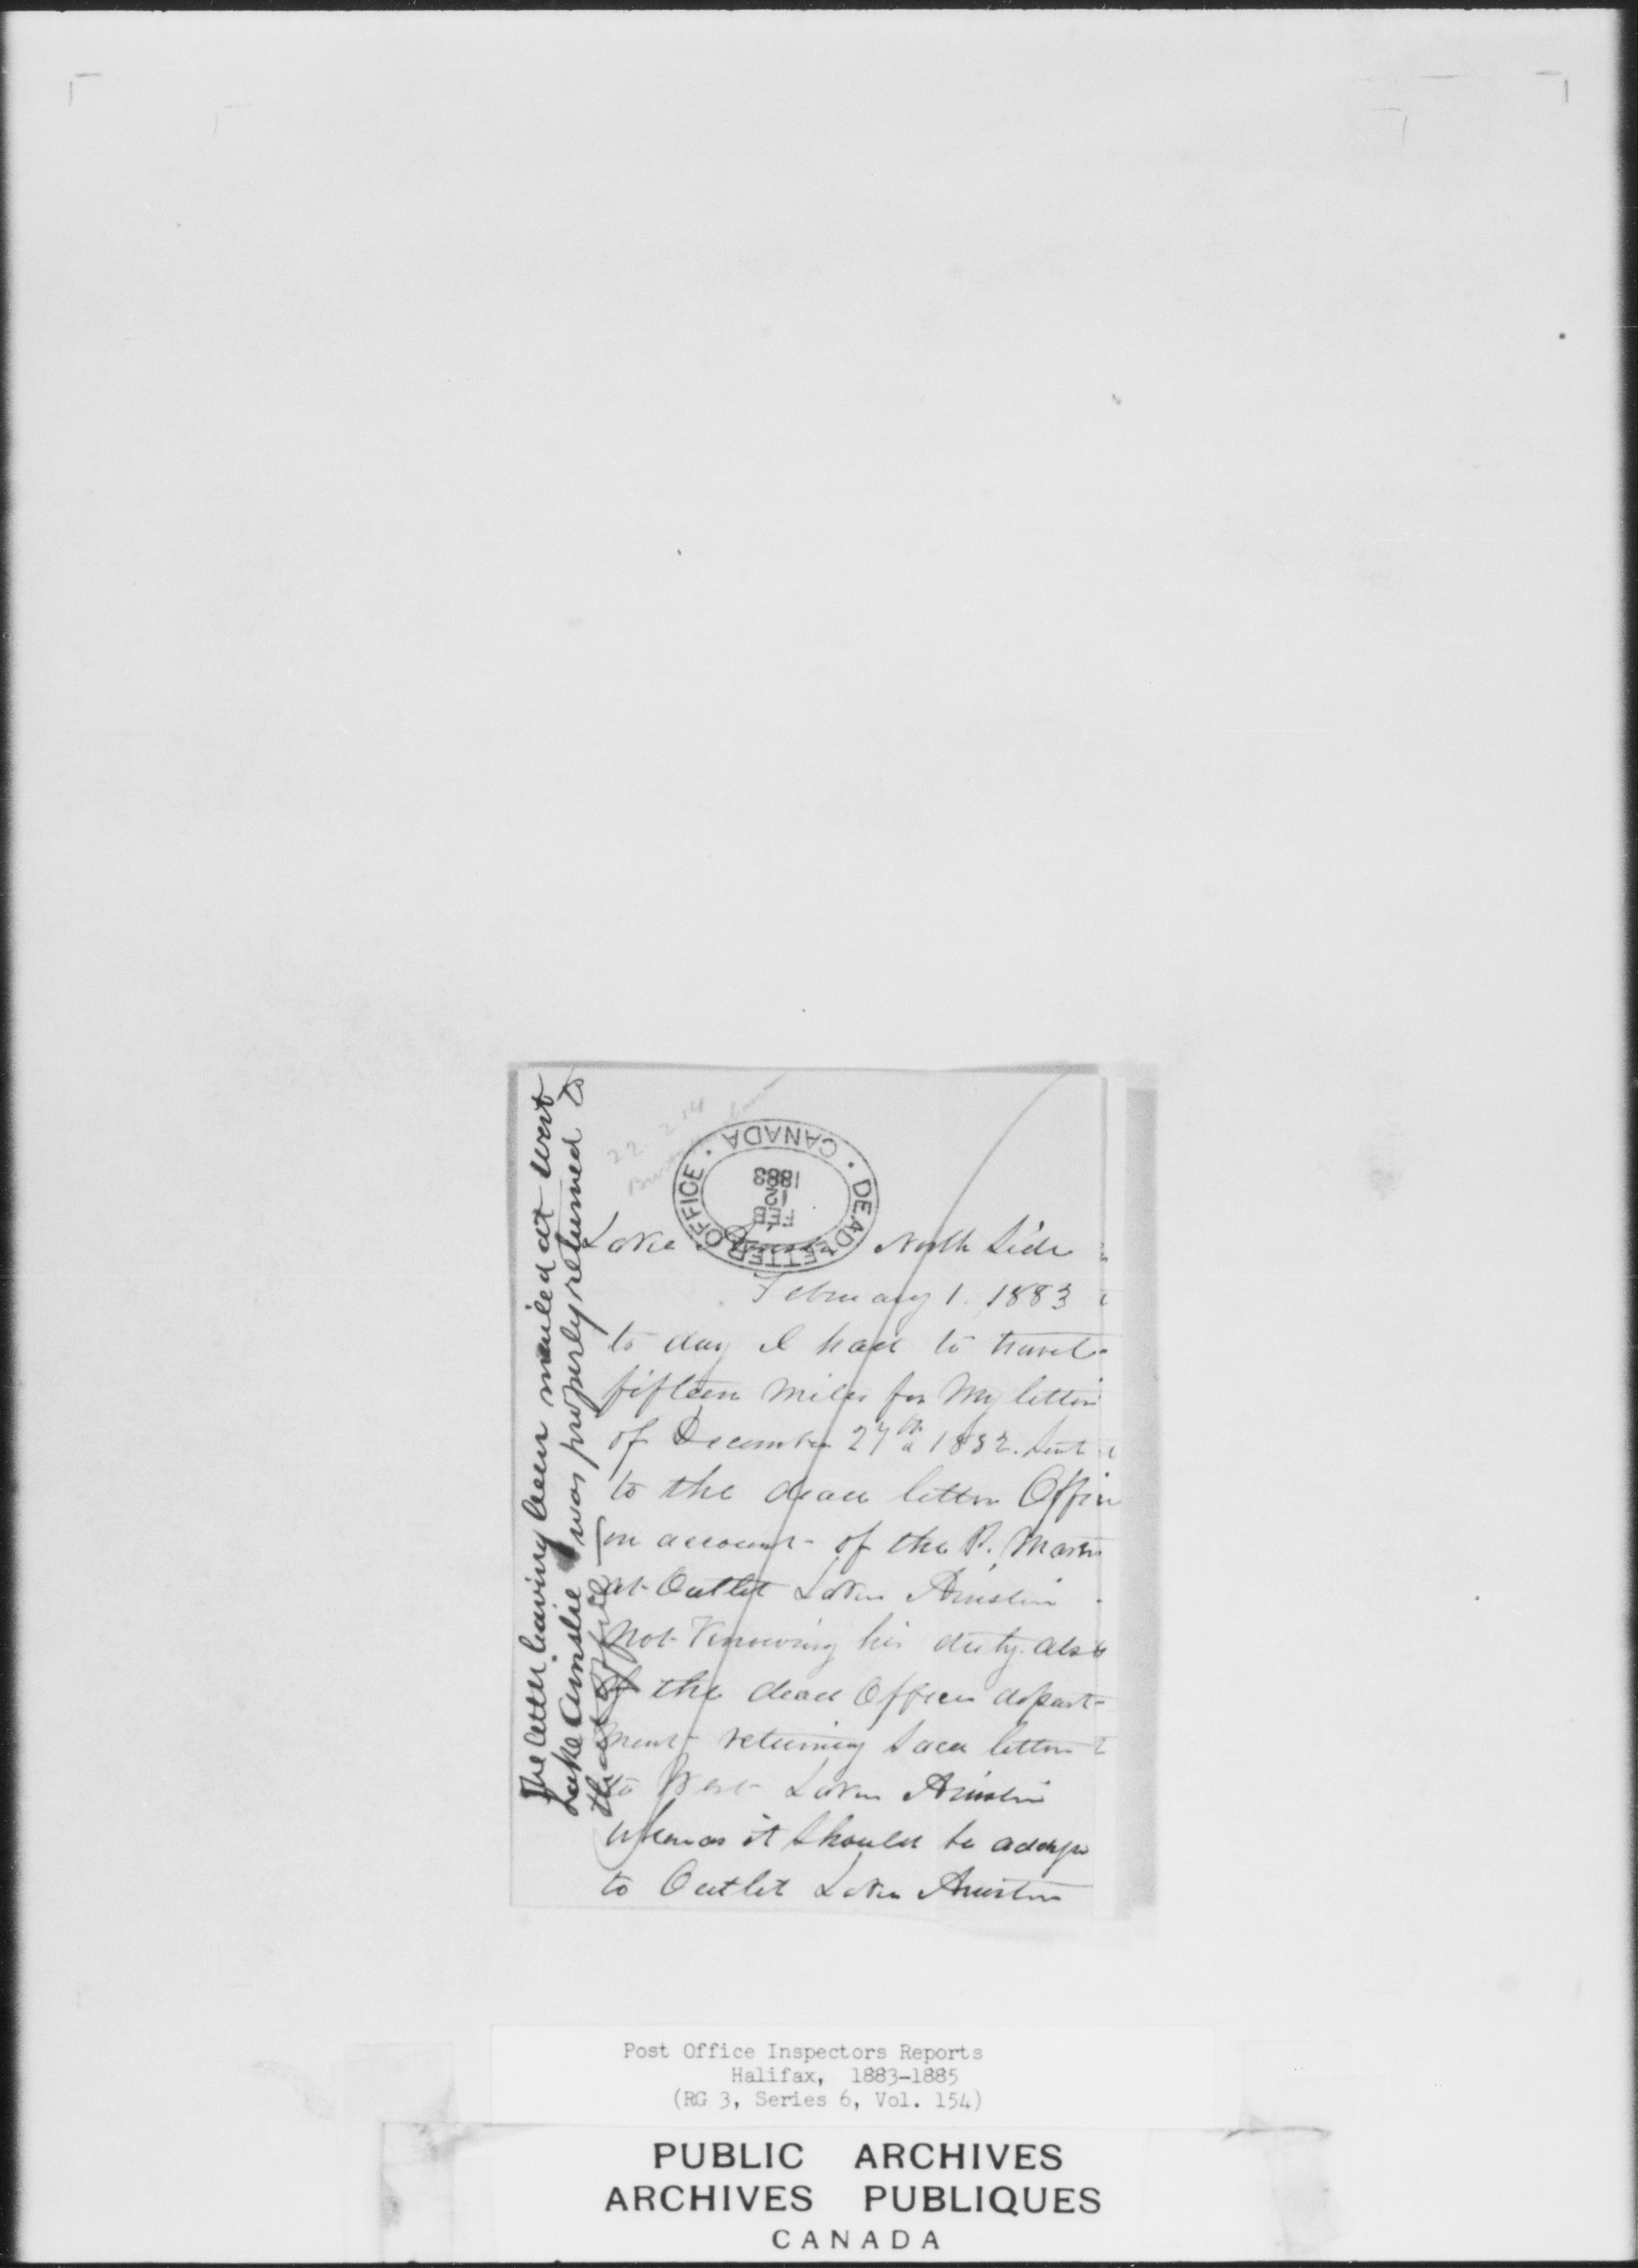 22 2 14
DEAD LETTER OFFICE · CANADA ·
FEB
12
1883
Lake Ainslie North Side
February 1. 1883
to day I had to travel
fifteen miles for My letter
of December 27th 1882. sent
to the dead letter Office
on account of the P. Master
at Outlet Lake Ainslie
Not Knowing his duty. also
of the dead Office depart-
ment returning said letter
to West Lake Ainslie
whereas it should be
to Outlet Lake Ainslie
The letter having been mailed at West
Lake Ainslie was properly returned to
that office
Post Office Inspectors Reports
Halifax, 1883-1885
(RG 3, Series 6, Vol. 154)
PUBLIC ARCHIVES
ARCHIVES PUBLIQUES
CANADA